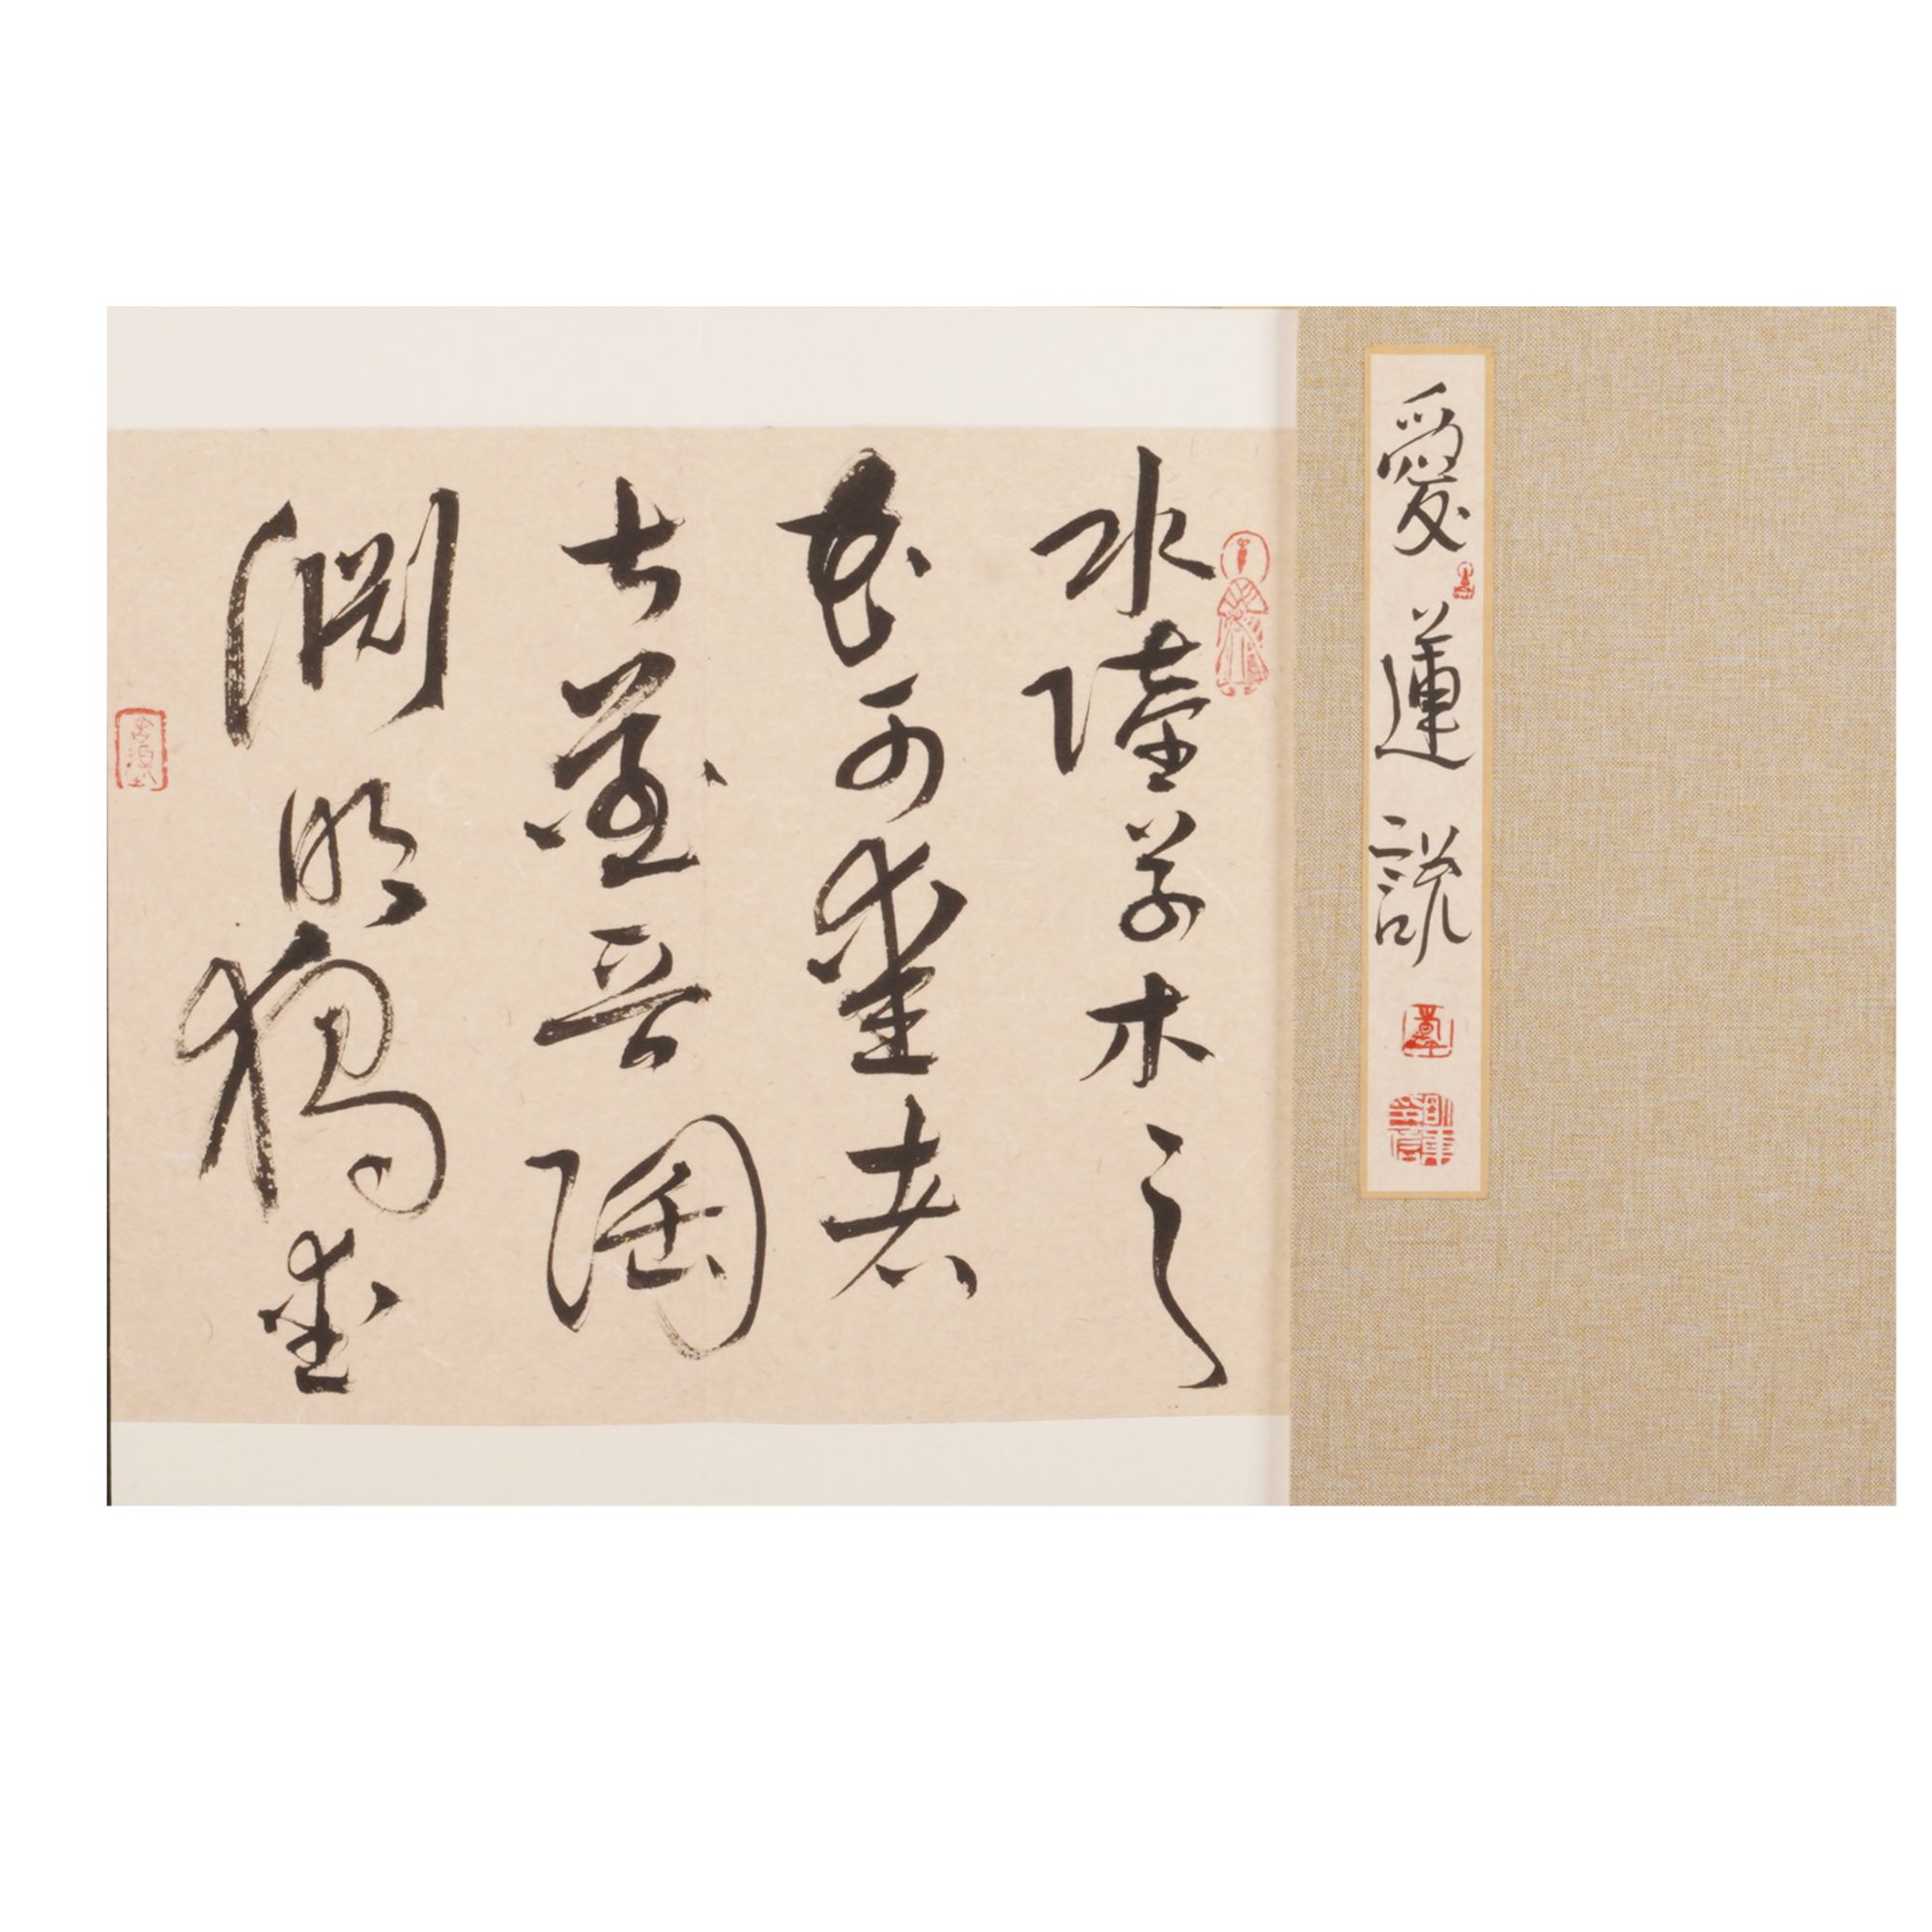 愛蓮說
水陸草木之
花可愛者
甚蕃晉陶
淵明獨愛